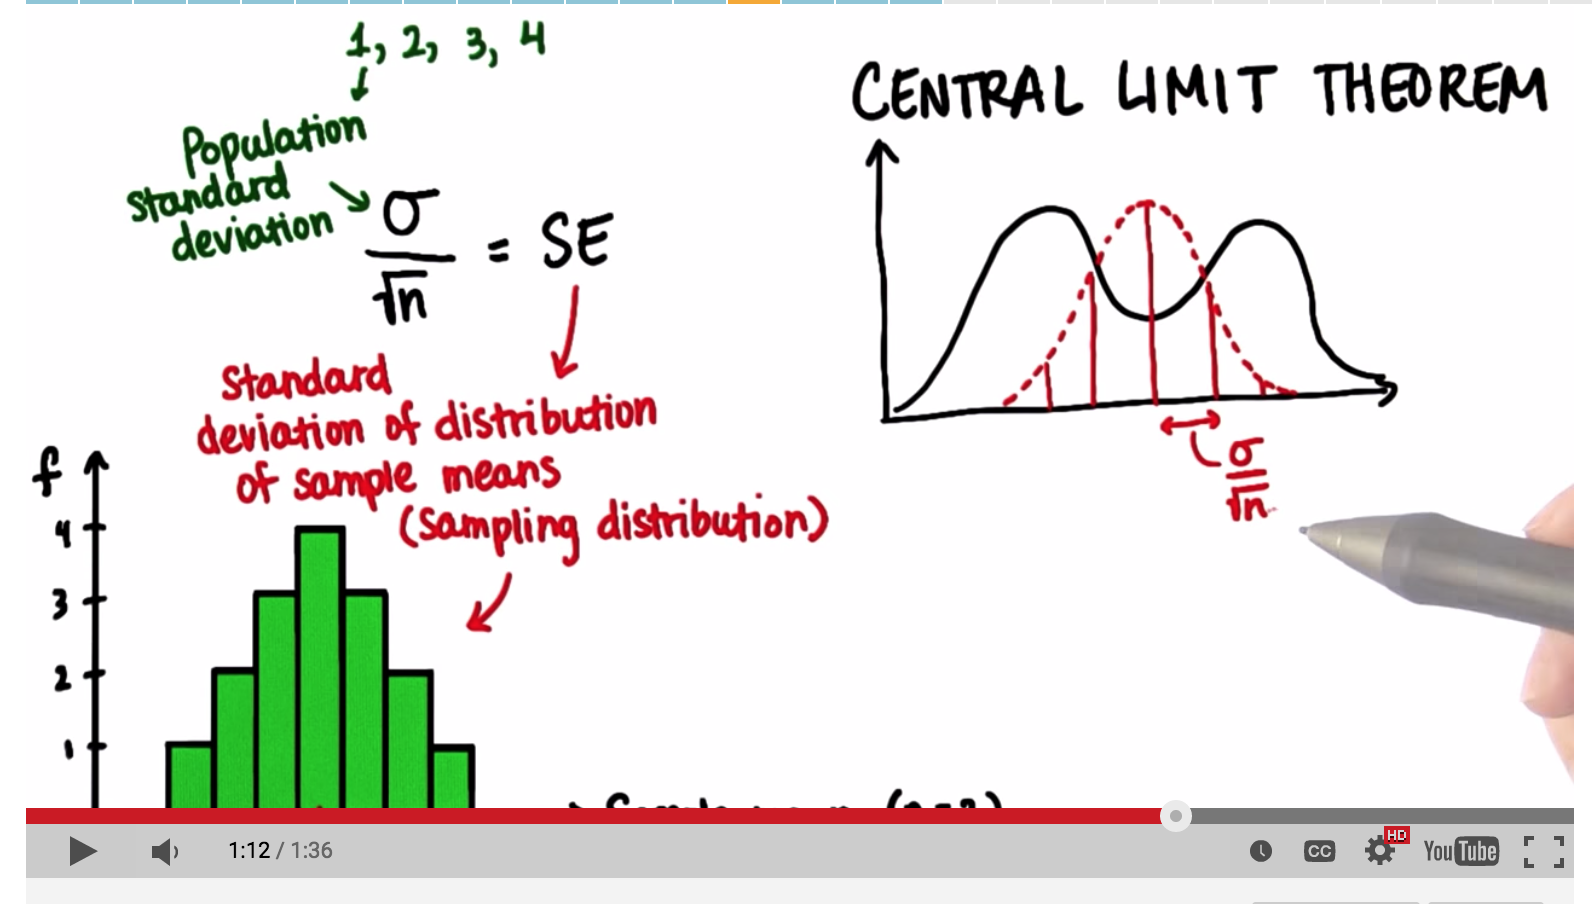 1, 2, 3, 4
Population
standard
deviation
σ
√n
= SE
Standard
deviation of distribution
of sample means
(sampling distribution)
f
4
3
2
1
CENTRAL LIMIT THEOREM
σ
√n
1:12 / 1:36
CC
HD
YouTube